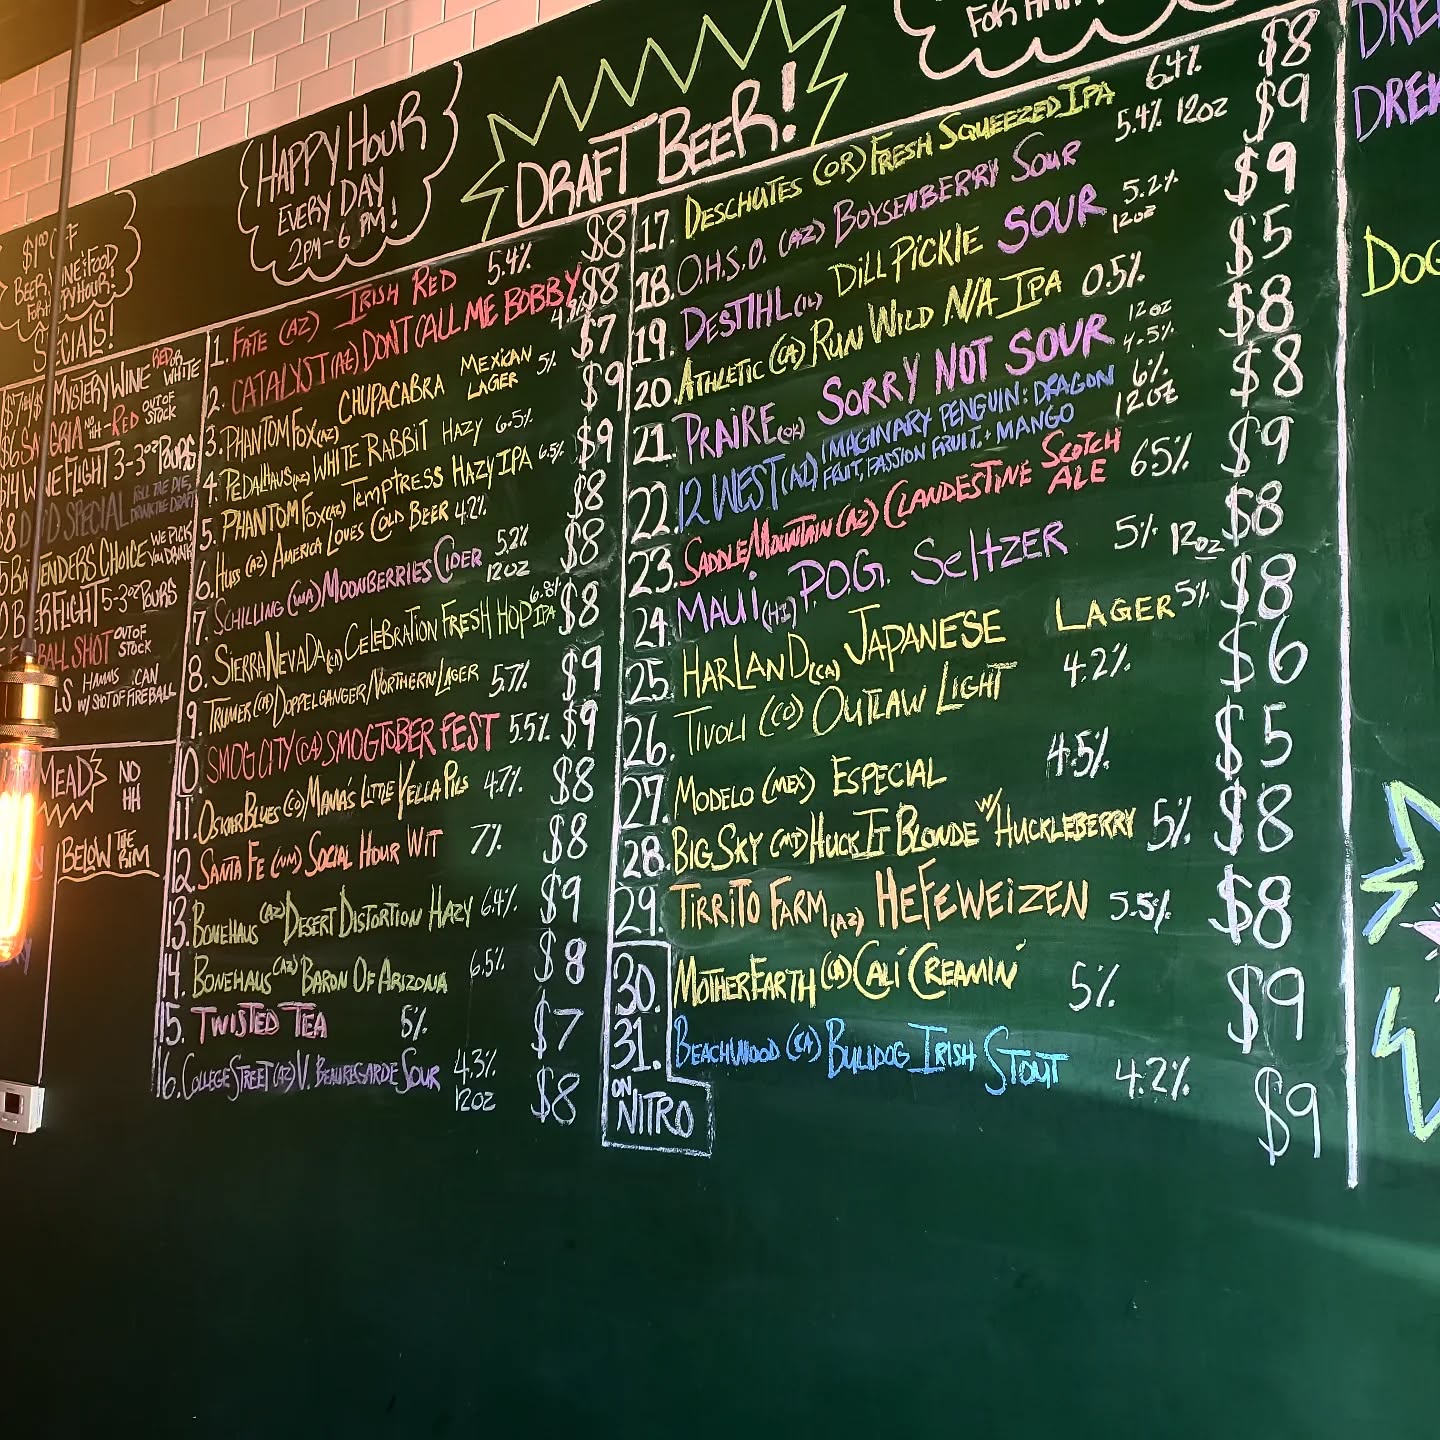 FOR HAPPY
DRAFT BEER!
HAPPY HOUR
EVERY DAY
2PM-6 PM!
BEER, WINE & FOOD
HAPPY HOUR!
SPECIALS!
MYSTERY WINE RED OR WHITE
NO HH - RED OUT OF STOCK
WINE FLIGHT 3-3oz POURS
SPECIAL ROLL THE DIE, DRINK THE DRAFT
BARTENDERS CHOICE WE PICK
BEER FLIGHT 5-3oz POURS
BALL SHOT OUT OF STOCK
HAMMS CAN
W/ SHOT OF FIREBALL
MEADS NO HH
BELOW THE RIM
1. FATE (AZ) IRISH RED 5.4% $8
2. CATALYST (AZ) DON'T CALL ME BOBBY $8
3. PHANTOM FOX (AZ) CHUPACABRA MEXICAN LAGER 5% $7
4. PEDALHAUS (AZ) WHITE RABBIT HAZY 6.5% $9
5. PHANTOM FOX (AZ) TEMPTRESS HAZY IPA 6.5% $9
6. HUSS (AZ) AMERICA LOVES COLD BEER 4.2% $8
7. SCHILLING (WA) MOONBERRIES CIDER 5.2% 12OZ $8
8. SIERRA NEVADA (CA) CELEBRATION FRESH HOP IPA 6.8% $8
9. TRUMER (CA) DOPPELGANGER/NORTHERN LAGER 5.7% $9
10. SMOG CITY (CA) SMOGTOBER FEST 5.5% $9
11. OSKAR BLUES (CO) MAMA'S LITTLE YELLA PILS 4.7% $8
12. SANTA FE (NM) SOCIAL HOUR WIT 7% $8
13. BONEHAUS (AZ) DESERT DISTORTION HAZY 6.4% $9
14. BONEHAUS (AZ) BARON OF ARIZONA 6.5% $8
15. TWISTED TEA 5% $7
16. COLLEGE STREET (AZ) V. BEAUREGARDE SOUR 4.3% 12OZ $8
17. DESCHUTES (OR) FRESH SQUEEZED IPA 6.4% $8
18. O.H.S.O. (AZ) BOYSENBERRY SOUR 5.4% 12OZ $9
19. DESTIHL (IL) DILL PICKLE SOUR 5.2% 12OZ $9
20. ATHLETIC (CA) RUN WILD N/A IPA 0.5% $5
21. PRAIRE (OK) SORRY NOT SOUR 12OZ 4.5% $8
22. 12 WEST (AZ) IMAGINARY PENGUIN: DRAGON FRUIT, PASSION FRUIT, + MANGO 6% 12OZ $8
23. SADDLE MOUNTAIN (AZ) CLANDESTINE SCOTCH ALE 65% $9
24. MAUI (HI) P.O.G. SELTZER 5% 12OZ $8
25. HARLAND (CA) JAPANESE LAGER 5% $8
26. TIVOLI (CO) OUTLAW LIGHT 4.2% $6
27. MODELO (MEX) ESPECIAL 4.5% $5
28. BIG SKY (MT) HUCK IT BLONDE W/ HUCKLEBERRY 5% $8
29. TIRRITO FARM (AZ) HEFEWEIZEN 5.5% $8
30. MOTHER EARTH (CA) CALI CREAMIN' 5% $9
31. BEACHWOOD (CA) BULLDOG IRISH STOUT 4.2% $9
ON NITRO
DOG